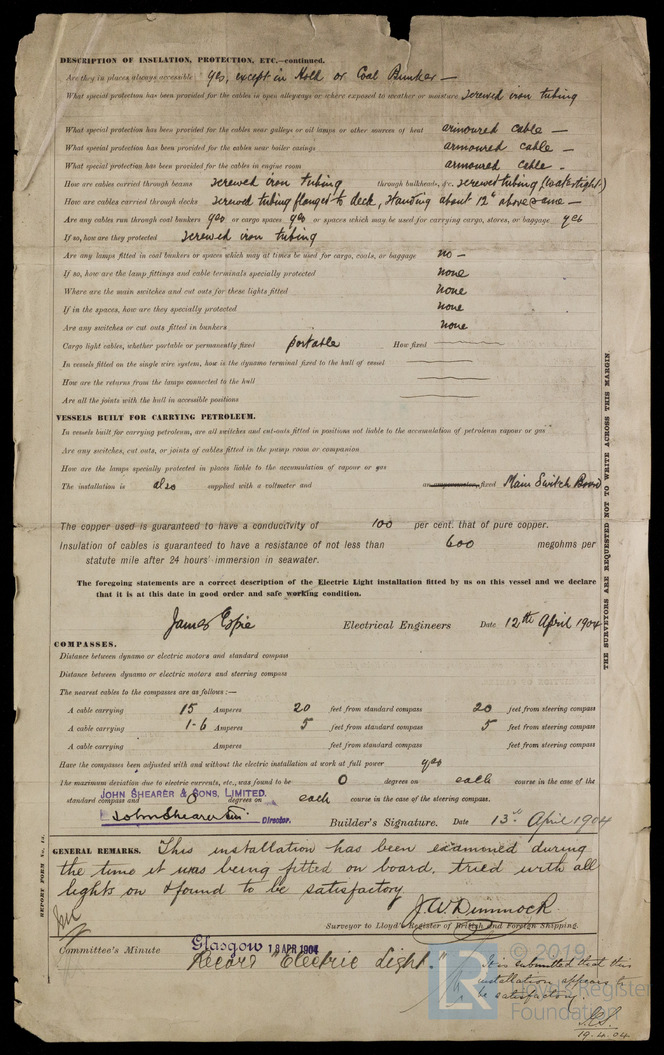 DESCRIPTION OF INSULATION, PROTECTION, ETC.—continued.
Are they in places always accessible yes, except in Hold or Coal Bunker —
What special protection has been provided for the cables in open alleyways or where exposed to weather or moisture screwed iron tubing
What special protection has been provided for the cables near galleys or oil lamps or other sources of heat armoured cable —
What special protection has been provided for the cables near boiler casings armoured cable —
What special protection has been provided for the cables in engine room armoured cable -
How are cables carried through beams screwed iron tubing through bulkheads, &c. screwed tubing (watertight)
How are cables carried through decks screwed tubing flanged to deck, standing about 12" above same —
Are any cables run through coal bunkers yes or cargo spaces yes or spaces which may be used for carrying cargo, stores, or baggage yes
If so, how are they protected screwed iron tubing
Are any lamps fitted in coal bunkers or spaces which may at times be used for cargo, coals, or baggage no —
If so, how are the lamp fittings and cable terminals specially protected none
Where are the main switches and cut outs for these lights fitted none
If in the spaces, how are they specially protected none
Are any switches or cut outs fitted in bunkers none
Cargo light cables, whether portable or permanently fixed portable How fixed
In vessels fitted on the single wire system, how is the dynamo terminal fixed to the hull of vessel
How are the returns from the lamps connected to the hull
Are all the joints with the hull in accessible positions
VESSELS BUILT FOR CARRYING PETROLEUM.
In vessels built for carrying petroleum, are all switches and cut-outs fitted in positions not liable to the accumulation of petroleum vapour or gas
Are any switches, cut outs, or joints of cables fitted in the pump room or companion
How are the lamps specially protected in places liable to the accumulation of vapour or gas
The installation is also supplied with a voltmeter and an amperemeter, fixed Main Switch Board
The copper used is guaranteed to have a conductivity of 100 per cent. that of pure copper.
Insulation of cables is guaranteed to have a resistance of not less than 600 megohms per
statute mile after 24 hours' immersion in seawater.
The foregoing statements are a correct description of the Electric Light installation fitted by us on this vessel and we declare
that it is at this date in good order and safe working condition.
James Espie Electrical Engineers Date 12th April 1904
COMPASSES.
Distance between dynamo or electric motors and standard compass
Distance between dynamo or electric motors and steering compass
The nearest cables to the compasses are as follows:—
A cable carrying 15 Amperes 20 feet from standard compass 20 feet from steering compass
A cable carrying 1-6 Amperes 5 feet from standard compass 5 feet from steering compass
A cable carrying Amperes feet from standard compass feet from steering compass
Have the compasses been adjusted with and without the electric installation at work at full power yes
The maximum deviation due to electric currents, etc., was found to be 0 degrees on each course in the case of the
standard compass and 0 degrees on each course in the case of the steering compass.
JOHN SHEARER & SONS, LIMITED.
John Shearer Director.
Builder's Signature. Date 13th April 1904
GENERAL REMARKS. This installation has been examined during
the time it was being fitted on board, tried with all
lights on & found to be satisfactory
J.W. Dimmock
Surveyor to Lloyd's Register of British and Foreign Shipping.
Committee's Minute Glasgow 18 APR 1904
Record "Electric Light."
It is submitted that this
installation appears to
be satisfactory.
19.4.04
THE SURVEYORS ARE REQUESTED NOT TO WRITE ACROSS THIS MARGIN.
REPORT FORM No. 14.
© 2019
LR
Lloyd's Register
Foundation